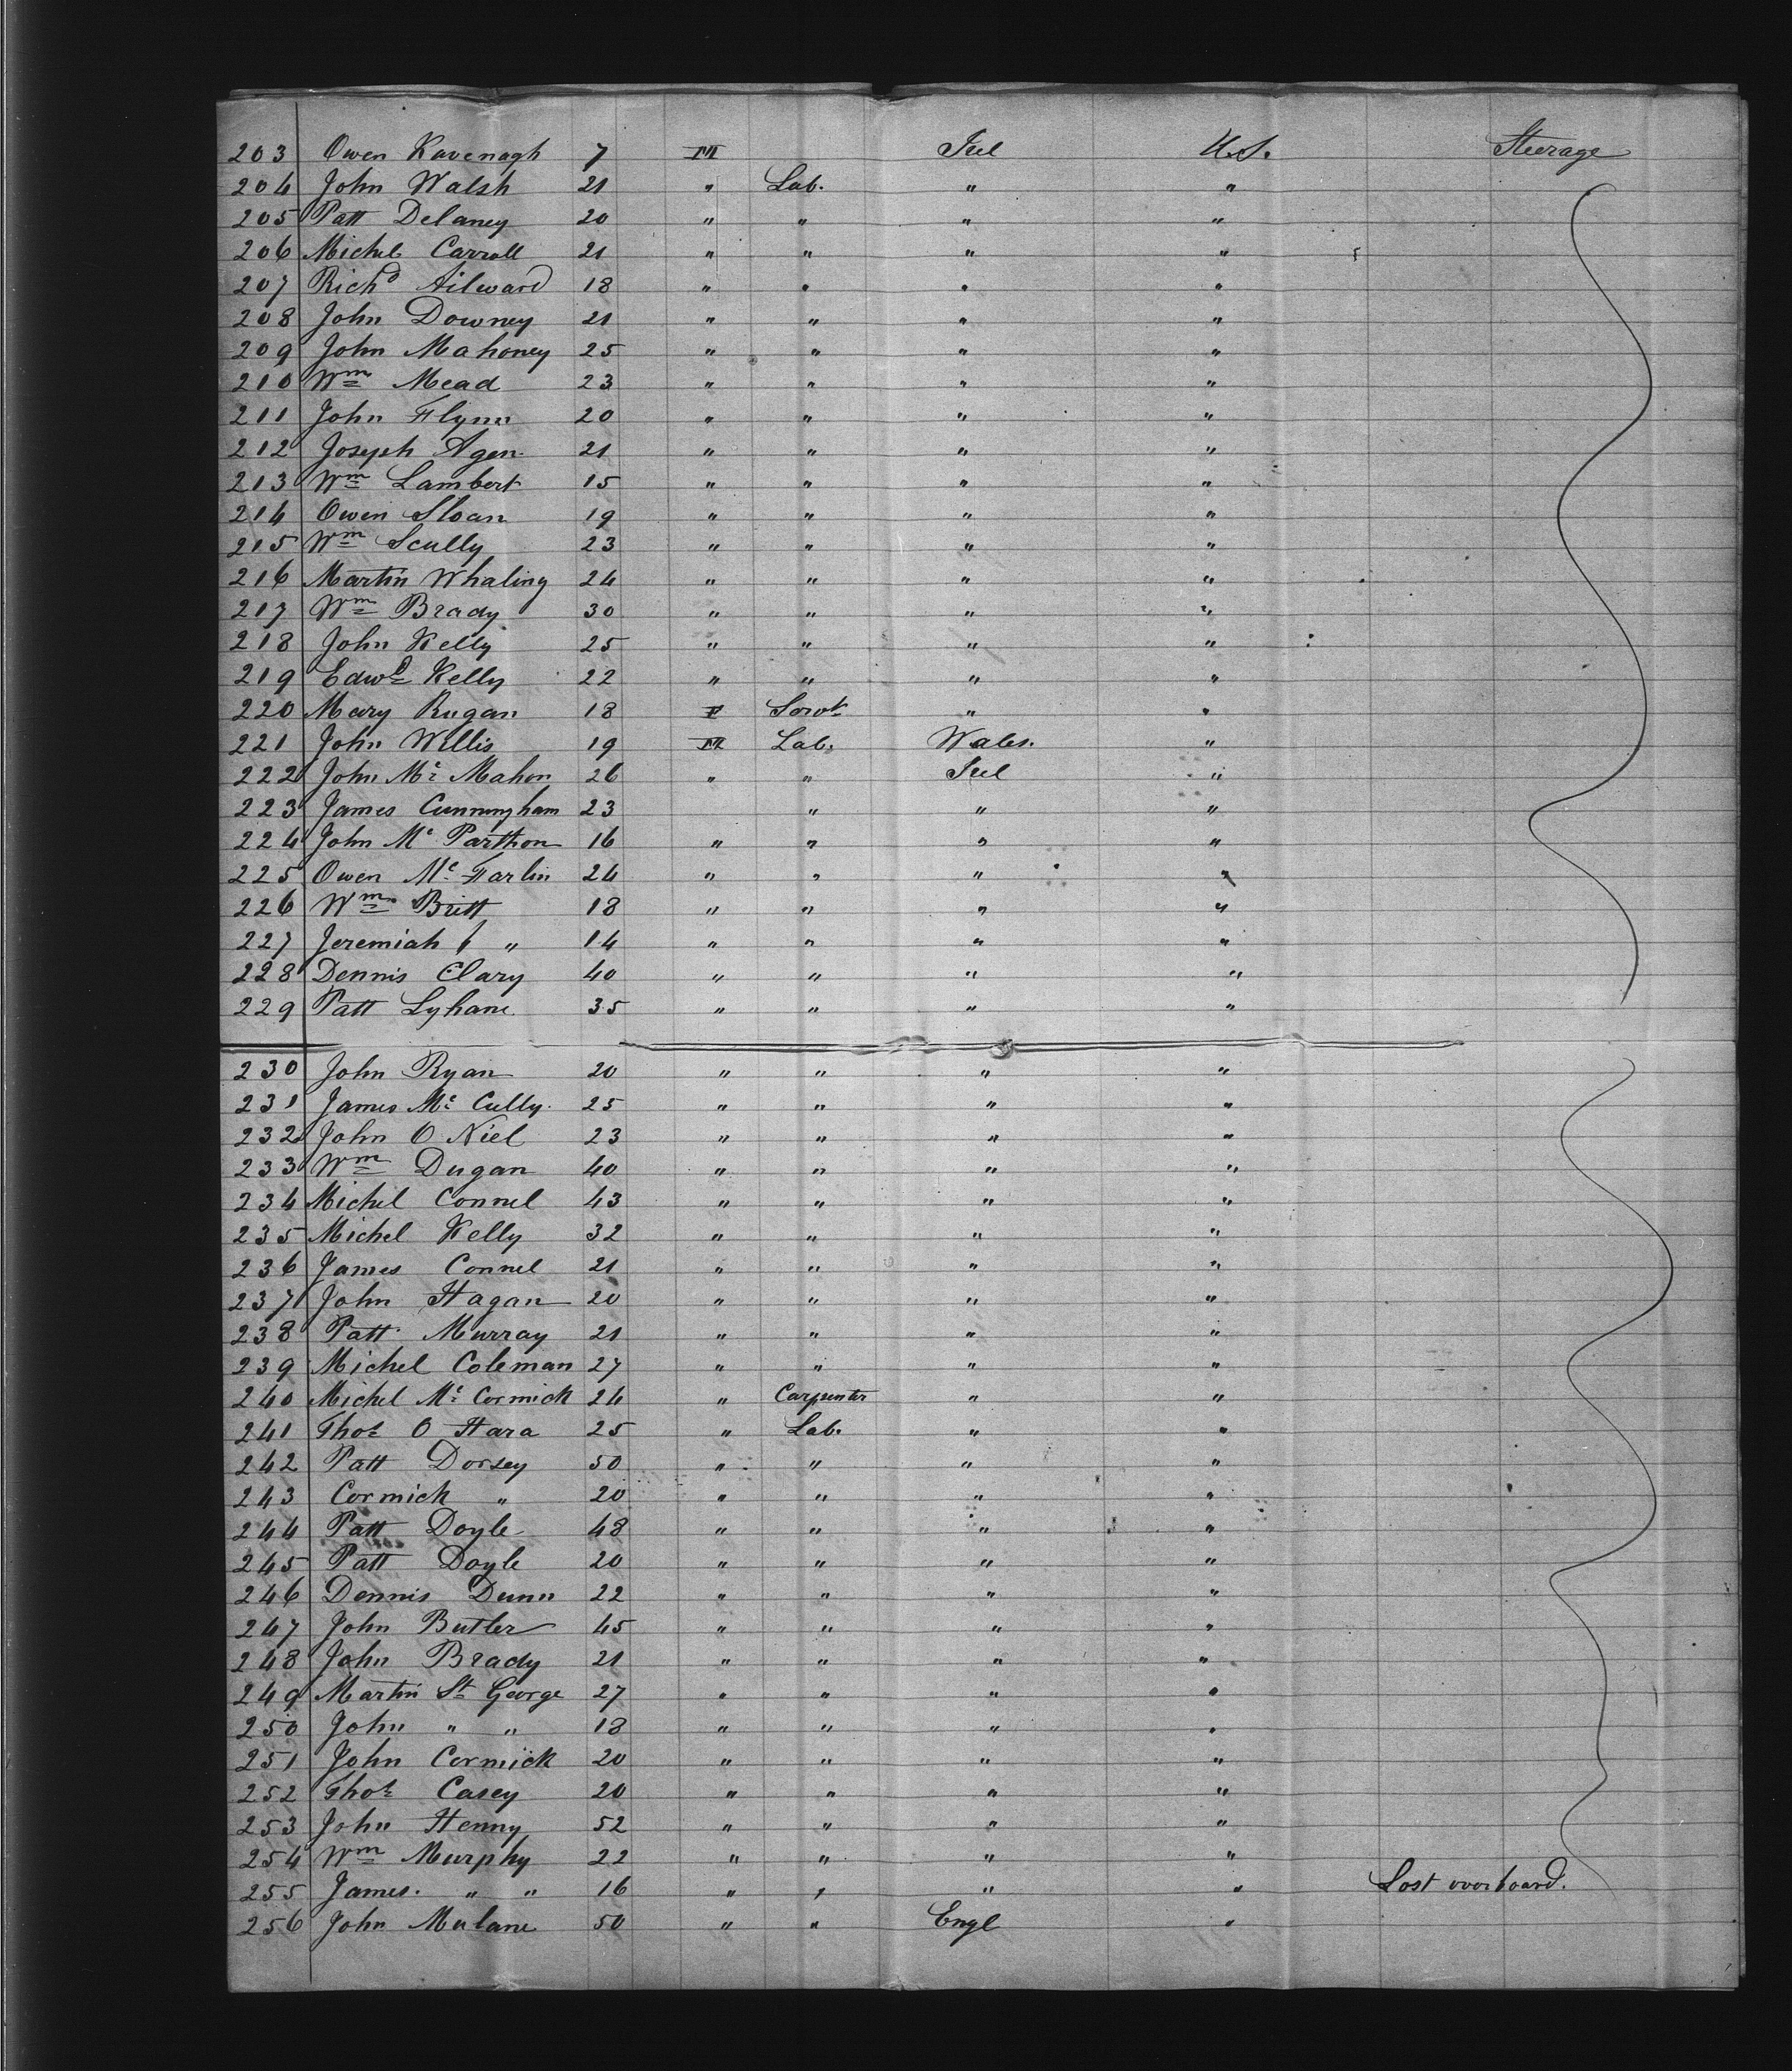 203 Owen Kavenagh 7 M Irel U.S. Steerage
204 John Walsh 21 " Lab. " "
205 Patt Delaney 20 " " " "
206 Michel Carroll 21 " " " "
207 Richd Ailward 18 " " " "
208 John Downey 21 " " " "
209 John Mahoney 25 " " " "
210 Wm Mead 23 " " " "
211 John Flynn 20 " " " "
212 Joseph Agen 21 " " " "
213 Wm Lambert 15 " " " "
214 Owen Sloan 19 " " " "
215 Wm Scully 23 " " " "
216 Martin Whaling 24 " " " "
217 Wm Brady 30 " " " "
218 John Kelly 25 " " " "
219 Edwd Kelly 22 " " " "
220 Mary Rugan 18 F Servt " "
221 John Willis 19 M Lab. Wales. "
222 John Mc Mahon 26 " " Irel "
223 James Cunningham 23 " " "
224 John Mc Parthon 16 " " " "
225 Owen Mc Farlin 24 " " " "
226 Wm Britt 18 " " " "
227 Jeremiah " 14 " " " "
228 Dennis Clary 40 " " " "
229 Patt Lyhane 35 " " " "
230 John Ryan 20 " " " "
231 James Mc Cully. 25 " " " "
232 John O Niel 23 " " " "
233 Wm Dugan 40 " " " "
234 Michel Connel 43 " " " "
235 Michel Kelly 32 " " " "
236 James Connel 21 " " " "
237 John Hagan 20 " " " "
238 Patt Murray 21 " " " "
239 Michel Coleman 27 " " " "
240 Michel Mc Cormick 24 " Carpenter " "
241 Thos O Hara 25 " Lab. " "
242 Patt Dorsey 50 " " " "
243 Cormick " 20 " " " "
244 Patt Doyle 48 " " " "
245 Patt Doyle 20 " " " "
246 Dennis Dunn 22 " " " "
247 John Butler 45 " " " "
248 John Brady 21 " " " "
249 Martin St George 27 " " " "
250 John " " 18 " " " "
251 John Cormick 20 " " " "
252 Thos Casey 20 " " " "
253 John Henny 52 " " " "
254 Wm Murphy 22 " " " "
255 James. " " 16 " " " " Lost overboard.
256 John Mulane 50 " " Engl "